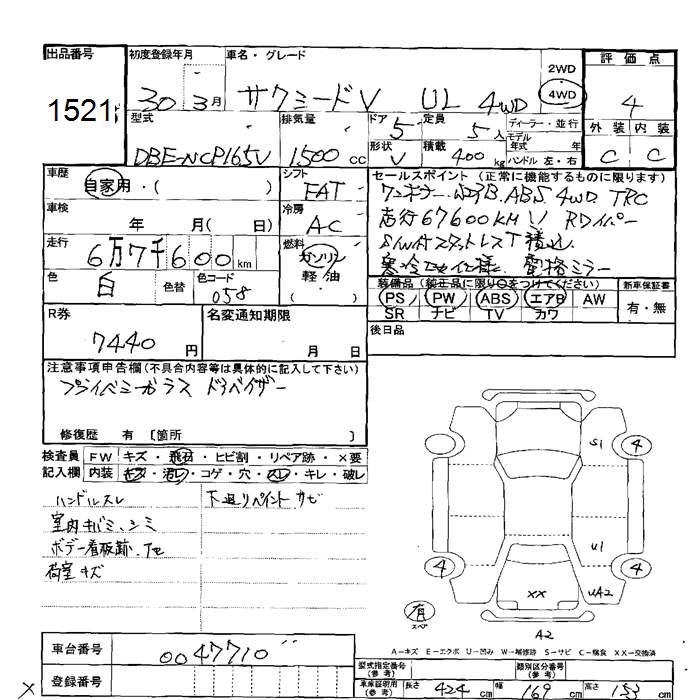 出品番号 初度登録年月 車名・グレード 2WD 4WD 評価点
1521 30年 3月 サクシードV UL 4WD 4
型式 排気量 ドア 5 定員 5人 ディーラー・並行 外装 内装
DBE-NCP165V 1500cc 形状 V 積載 400kg モデル 年式 年 ハンドル 左・右 C C
車歴 シフト セールスポイント(正常に機能するものに限ります)
自家用・( ) FAT ワンオーナー ABS 4WD TRC
車検 冷房 走行67600KM Rワイパー
年 月(日) AC S/W付スタットレスT積込
走行 6万7千600km 燃料 ガソリン 軽油 ( ) 寒冷地仕様 電格ミラー
色 白 色替 色コード 058
装備品(純正品に限り○をつけてください) 新車保証書
PS PW ABS エアB AW 有・無
SR ナビ TV カワ
R券 名変通知期限 後日品
7440円 月 日
注意事項申告欄(不具合内容等は具体的に記入して下さい)
プライバシーガラス ドアバイザー
修復歴 有 [箇所 ]
検査員 FW キズ・飛石・ヒビ割・リペア跡・×要
記入欄 内装 キズ・汚レ・コゲ・穴・スレ・キレ・破レ
ハンドルスレ 下廻りペイント サビ
室内キバミ、シミ
ボデー看板跡、
荷室キズ
S1 4
4 U1 4
XX UA2
有 スペア A2
A−キズ E−エクボ U−凹み W−補修跡 S−サビ C−腐食 XX−交換済
車台番号 0047710
登録番号
型式指定番号(参考) 類別区分番号(参考)
車庫証明用(参考) 長さ 424cm 幅 169cm 高さ 153cm
×